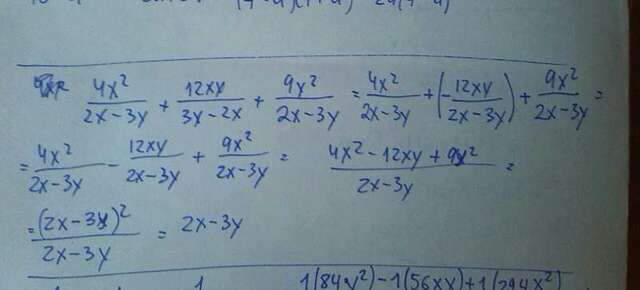 4x²/(2x-3y) + 12xy/(3y-2x) + 9x²/(2x-3y) = 4x²/(2x-3y) + (-12xy/(2x-3y)) + 9x²/(2x-3y) =
= 4x²/(2x-3y) - 12xy/(2x-3y) + 9x²/(2x-3y) = (4x²-12xy+9y²)/(2x-3y) =
= (2x-3y)²/(2x-3y) = 2x-3y
1(84x²)-1(56xy)+1(294x²)